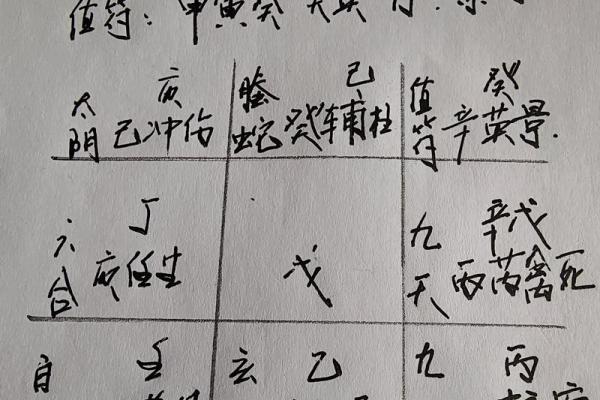 值符：甲寅癸 天英
庚 己 癸
太阴 己冲伤 螣蛇 癸辅杜 值符 辛英景.
丁 辛戊
六合 庚任生 戊 九天 丙芮禽死
白 壬 玄 乙 九 丙